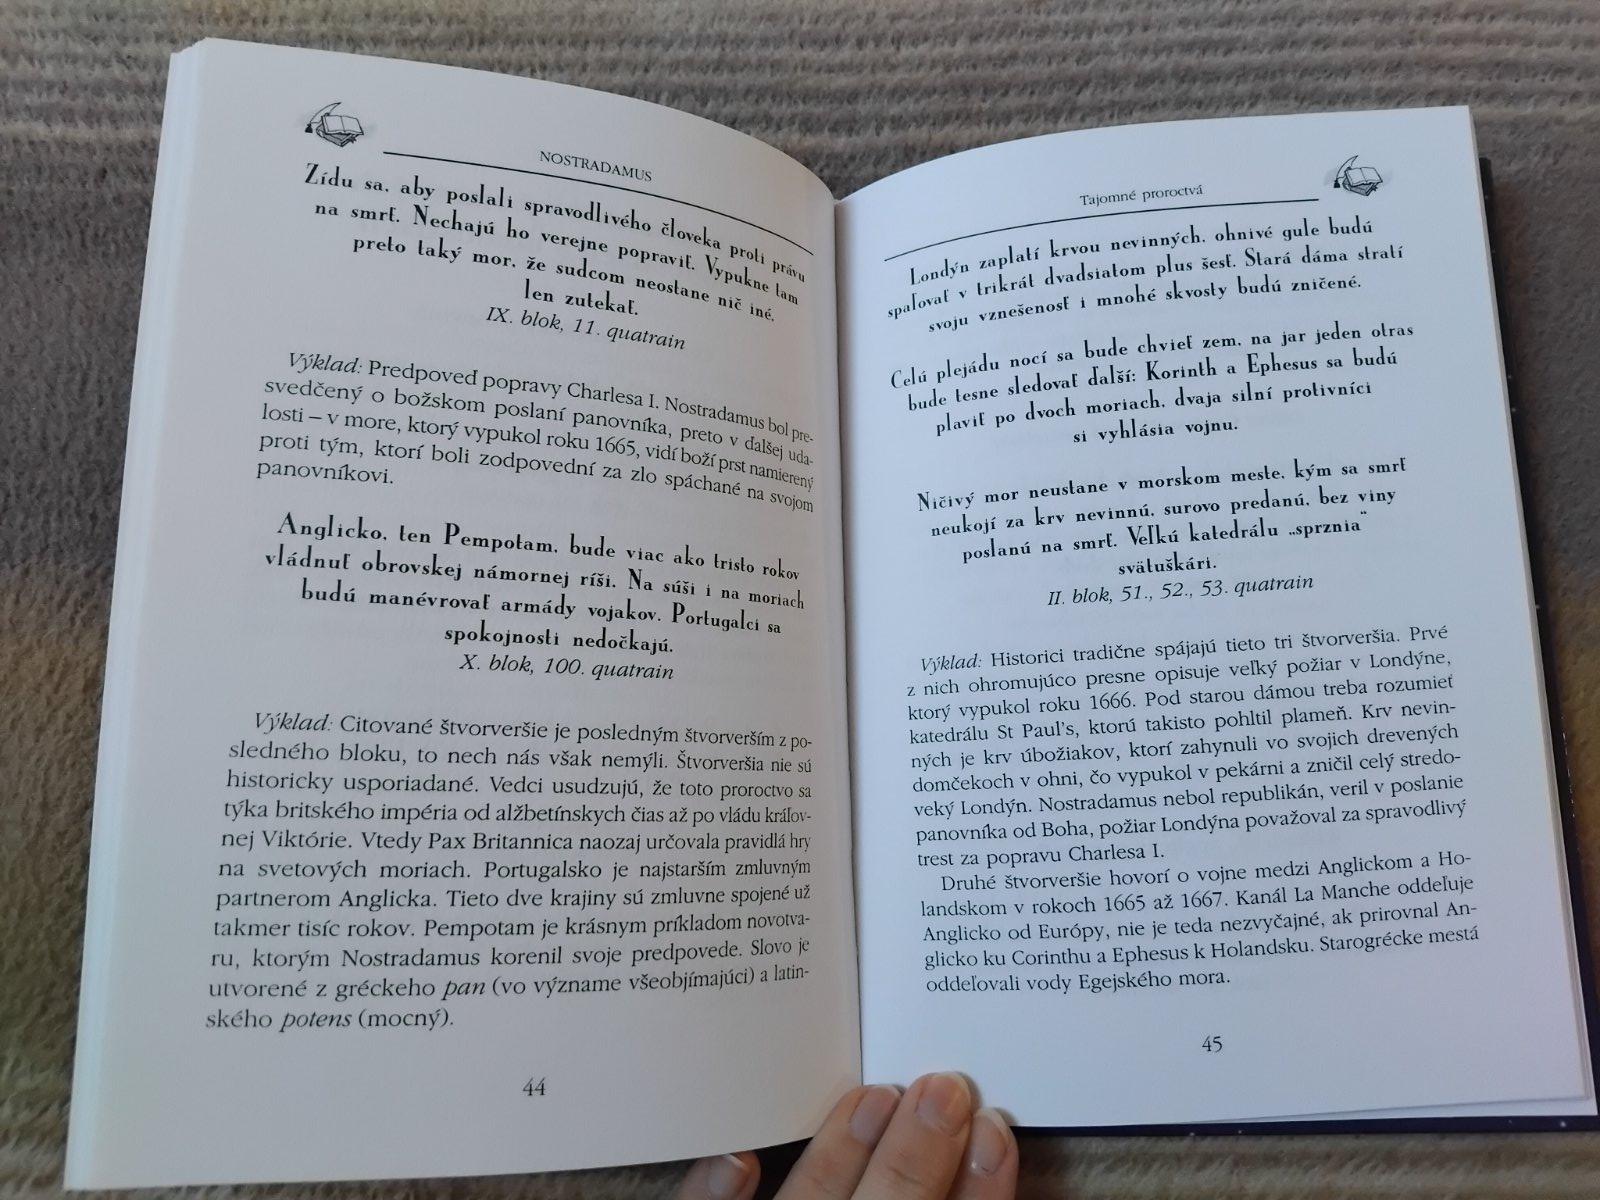 NOSTRADAMUS
Zídu sa, aby poslali spravodlivého človeka proti právu
na smrť. Nechajú ho verejne popraviť. Vypukne tam
preto taký mor, že sudcom neostane nič iné,
len zutekať.
IX. blok, 11. quatrain
Výklad: Predpoveď popravy Charlesa I. Nostradamus bol pre-
svedčený o božskom poslaní panovníka, preto v ďalšej uda-
losti – v more, ktorý vypukol roku 1665, vidí boží prst namierený
proti tým, ktorí boli zodpovední za zlo spáchané na svojom
panovníkovi.
Anglicko, ten Pempotam, bude viac ako tristo rokov
vládnuť obrovskej námornej ríši. Na súši i na moriach
budú manévrovať armády vojakov. Portugalci sa
spokojnosti nedočkajú.
X. blok, 100. quatrain
Výklad: Citované štvorveršie je posledným štvorverším z po-
sledného bloku, to nech nás však nemýli. Štvorveršia nie sú
historicky usporiadané. Vedci usudzujú, že toto proroctvo sa
týka britského impéria od alžbetínskych čias až po vládu kráľov-
nej Viktórie. Vtedy Pax Britannica naozaj určovala pravidlá hry
na svetových moriach. Portugalsko je najstarším zmluvným
partnerom Anglicka. Tieto dve krajiny sú zmluvne spojené už
takmer tisíc rokov. Pempotam je krásnym príkladom novotva-
ru, ktorým Nostradamus korenil svoje predpovede. Slovo je
utvorené z gréckeho pan (vo význame všeobjímajúci) a latin-
ského potens (mocný).
44
Tajomné proroctvá
Londýn zaplatí krvou nevinných, ohnivé gule budú
spaľovať v trikrát dvadsiatom plus šesť. Stará dáma stratí
svoju vznešenosť i mnohé skvosty budú zničené.
Celú plejádu nocí sa bude chvieť zem, na jar jeden otras
bude tesne sledovať ďalší: Korinth a Ephesus sa budú
plaviť po dvoch moriach, dvaja silní protivníci
si vyhlásia vojnu.
Ničivý mor neustane v morskom meste, kým sa smrť
neukojí za krv nevinnú, surovo predanú, bez viny
poslanú na smrť. Veľkú katedrálu „sprznia“
svätuškári.
II. blok, 51., 52., 53. quatrain
Výklad: Historici tradične spájajú tieto tri štvorveršia. Prvé
z nich ohromujúco presne opisuje veľký požiar v Londýne,
ktorý vypukol roku 1666. Pod starou dámou treba rozumieť
katedrálu St Paul's, ktorú takisto pohltil plameň. Krv nevin-
ných je krv úbožiakov, ktorí zahynuli vo svojich drevených
domčekoch v ohni, čo vypukol v pekárni a zničil celý stredo-
veký Londýn. Nostradamus nebol republikán, veril v poslanie
panovníka od Boha, požiar Londýna považoval za spravodlivý
trest za popravu Charlesa I.
Druhé štvorveršie hovorí o vojne medzi Anglickom a Ho-
landskom v rokoch 1665 až 1667. Kanál La Manche oddeľuje
Anglicko od Európy, nie je teda nezvyčajné, ak prirovnal An-
glicko ku Corinthu a Ephesus k Holandsku. Starogrécke mestá
oddeľovali vody Egejského mora.
45